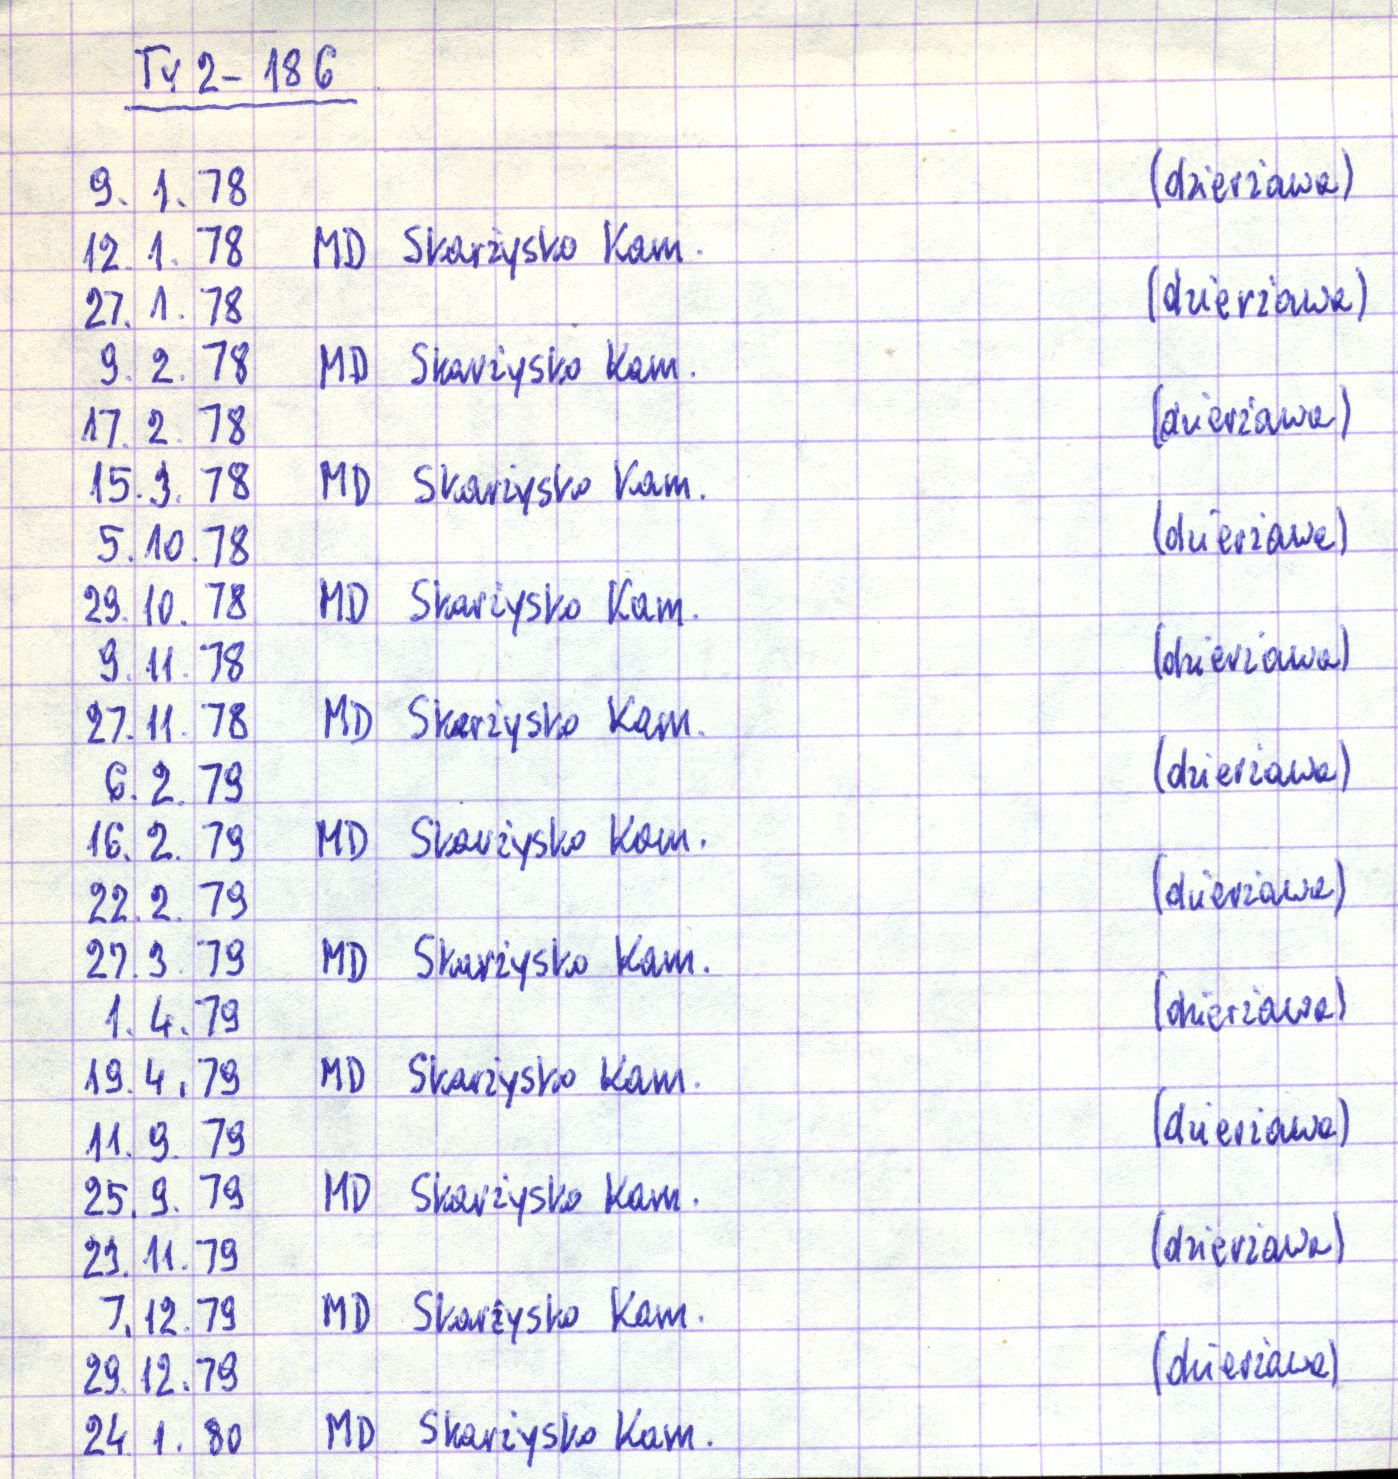 Ty 2-186
9. 1. 78 (dzierżawa)
12. 1. 78 MD Skarżysko Kam.
27. 1. 78 (dzierżawa)
9. 2. 78 MD Skarżysko Kam.
17. 2. 78 (dzierżawa)
15. 3. 78 MD Skarżysko Kam.
5. 10. 78 (dzierżawa)
29. 10. 78 MD Skarżysko Kam.
9. 11. 78 (dzierżawa)
27. 11. 78 MD Skarżysko Kam.
6. 2. 79 (dzierżawa)
16. 2. 79 MD Skarżysko Kam.
22. 2. 79 (dzierżawa)
27. 3. 79 MD Skarżysko Kam.
1. 4. 79 (dzierżawa)
19. 4. 79 MD Skarżysko Kam.
11. 9. 79 (dzierżawa)
25. 9. 79 MD Skarżysko Kam.
23. 11. 79 (dzierżawa)
7. 12. 79 MD Skarżysko Kam.
29. 12. 79 (dzierżawa)
24. 1. 80 MD Skarżysko Kam.